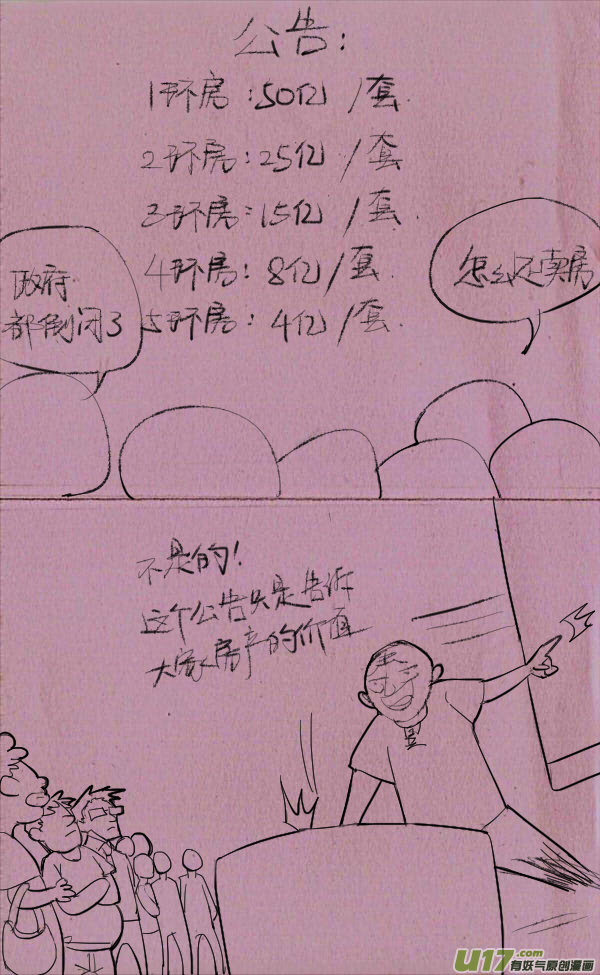 公告：
1环房：50亿/套.
2环房：25亿/套
3环房：15亿/套.
4环房：8亿/套.
5环房：4亿/套.
政府
都倒闭了
怎么还卖房
不是的！
这个公告只是告诉
大家房产的价值
U17.com
有妖气原创漫画